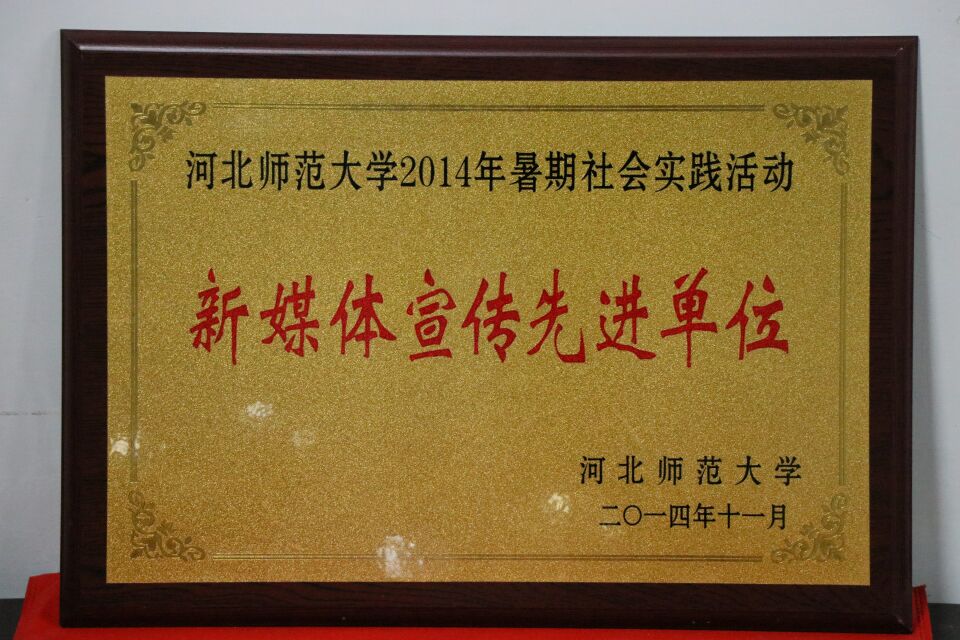 河北师范大学2014年暑期社会实践活动
新媒体宣传先进单位
河北师范大学
二〇一四年十一月